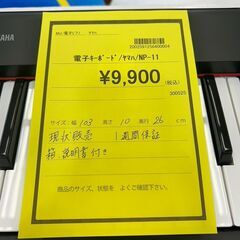 YAMAHA
2002591256400004
電子ｷｰﾎﾞｰﾄﾞ/ﾔﾏﾊ/NP-11
¥9,900
(税込)
300525
サイズ：幅 103 高さ 10 奥行 26 cm
現状販売 1週間保証
箱 説明書付き
商品のサイズ、状態を よくご確認下さい。